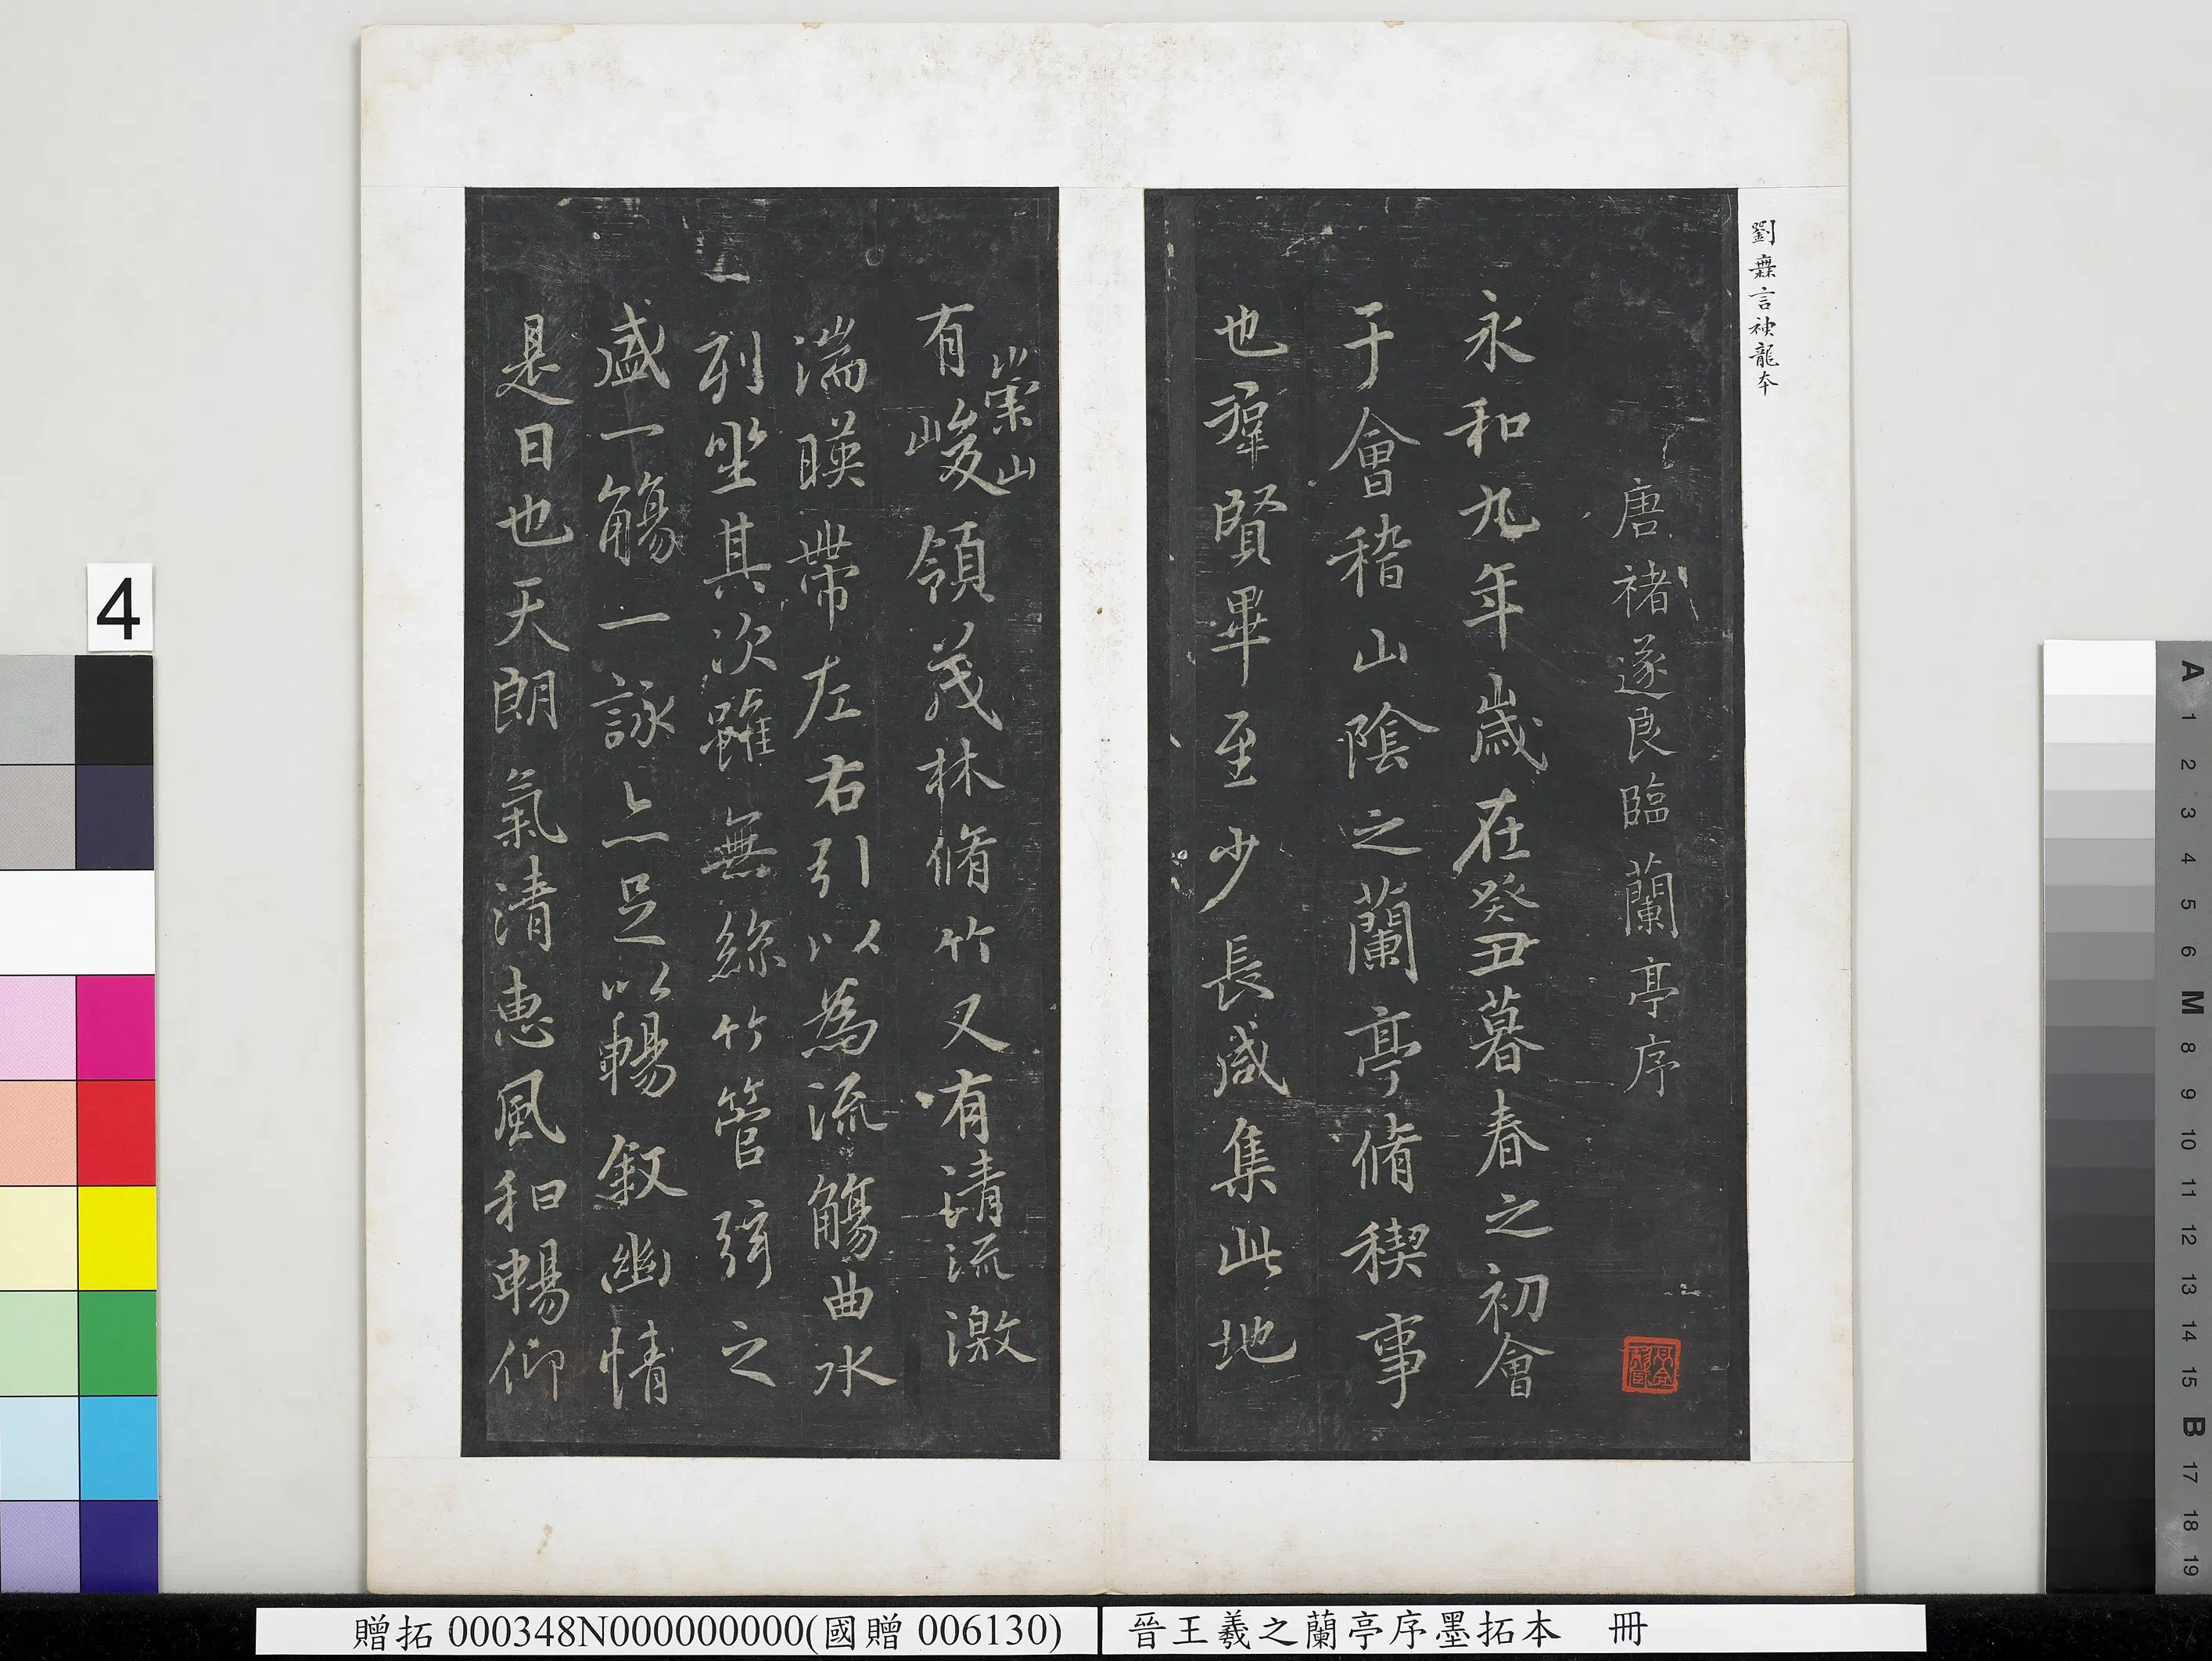 劉無言神龍本
唐褚遂良臨蘭亭序
永和九年歲在癸丑暮春之初會
于會稽山陰之蘭亭脩稧事
也羣賢畢至少長咸集此地
有崇山峻領茂林脩竹又有清流激
湍暎帶左右引以為流觴曲水
列坐其次雖無絲竹管弦之
盛一觴一詠亦足以暢敘幽情
是日也天朗氣清惠風和暢仰
4
A
1
2
3
4
5
6
M
8
9
10
11
12
13
14
15
B
17
18
19
贈拓 000348N000000000(國贈 006130)
晉王羲之蘭亭序墨拓本 冊